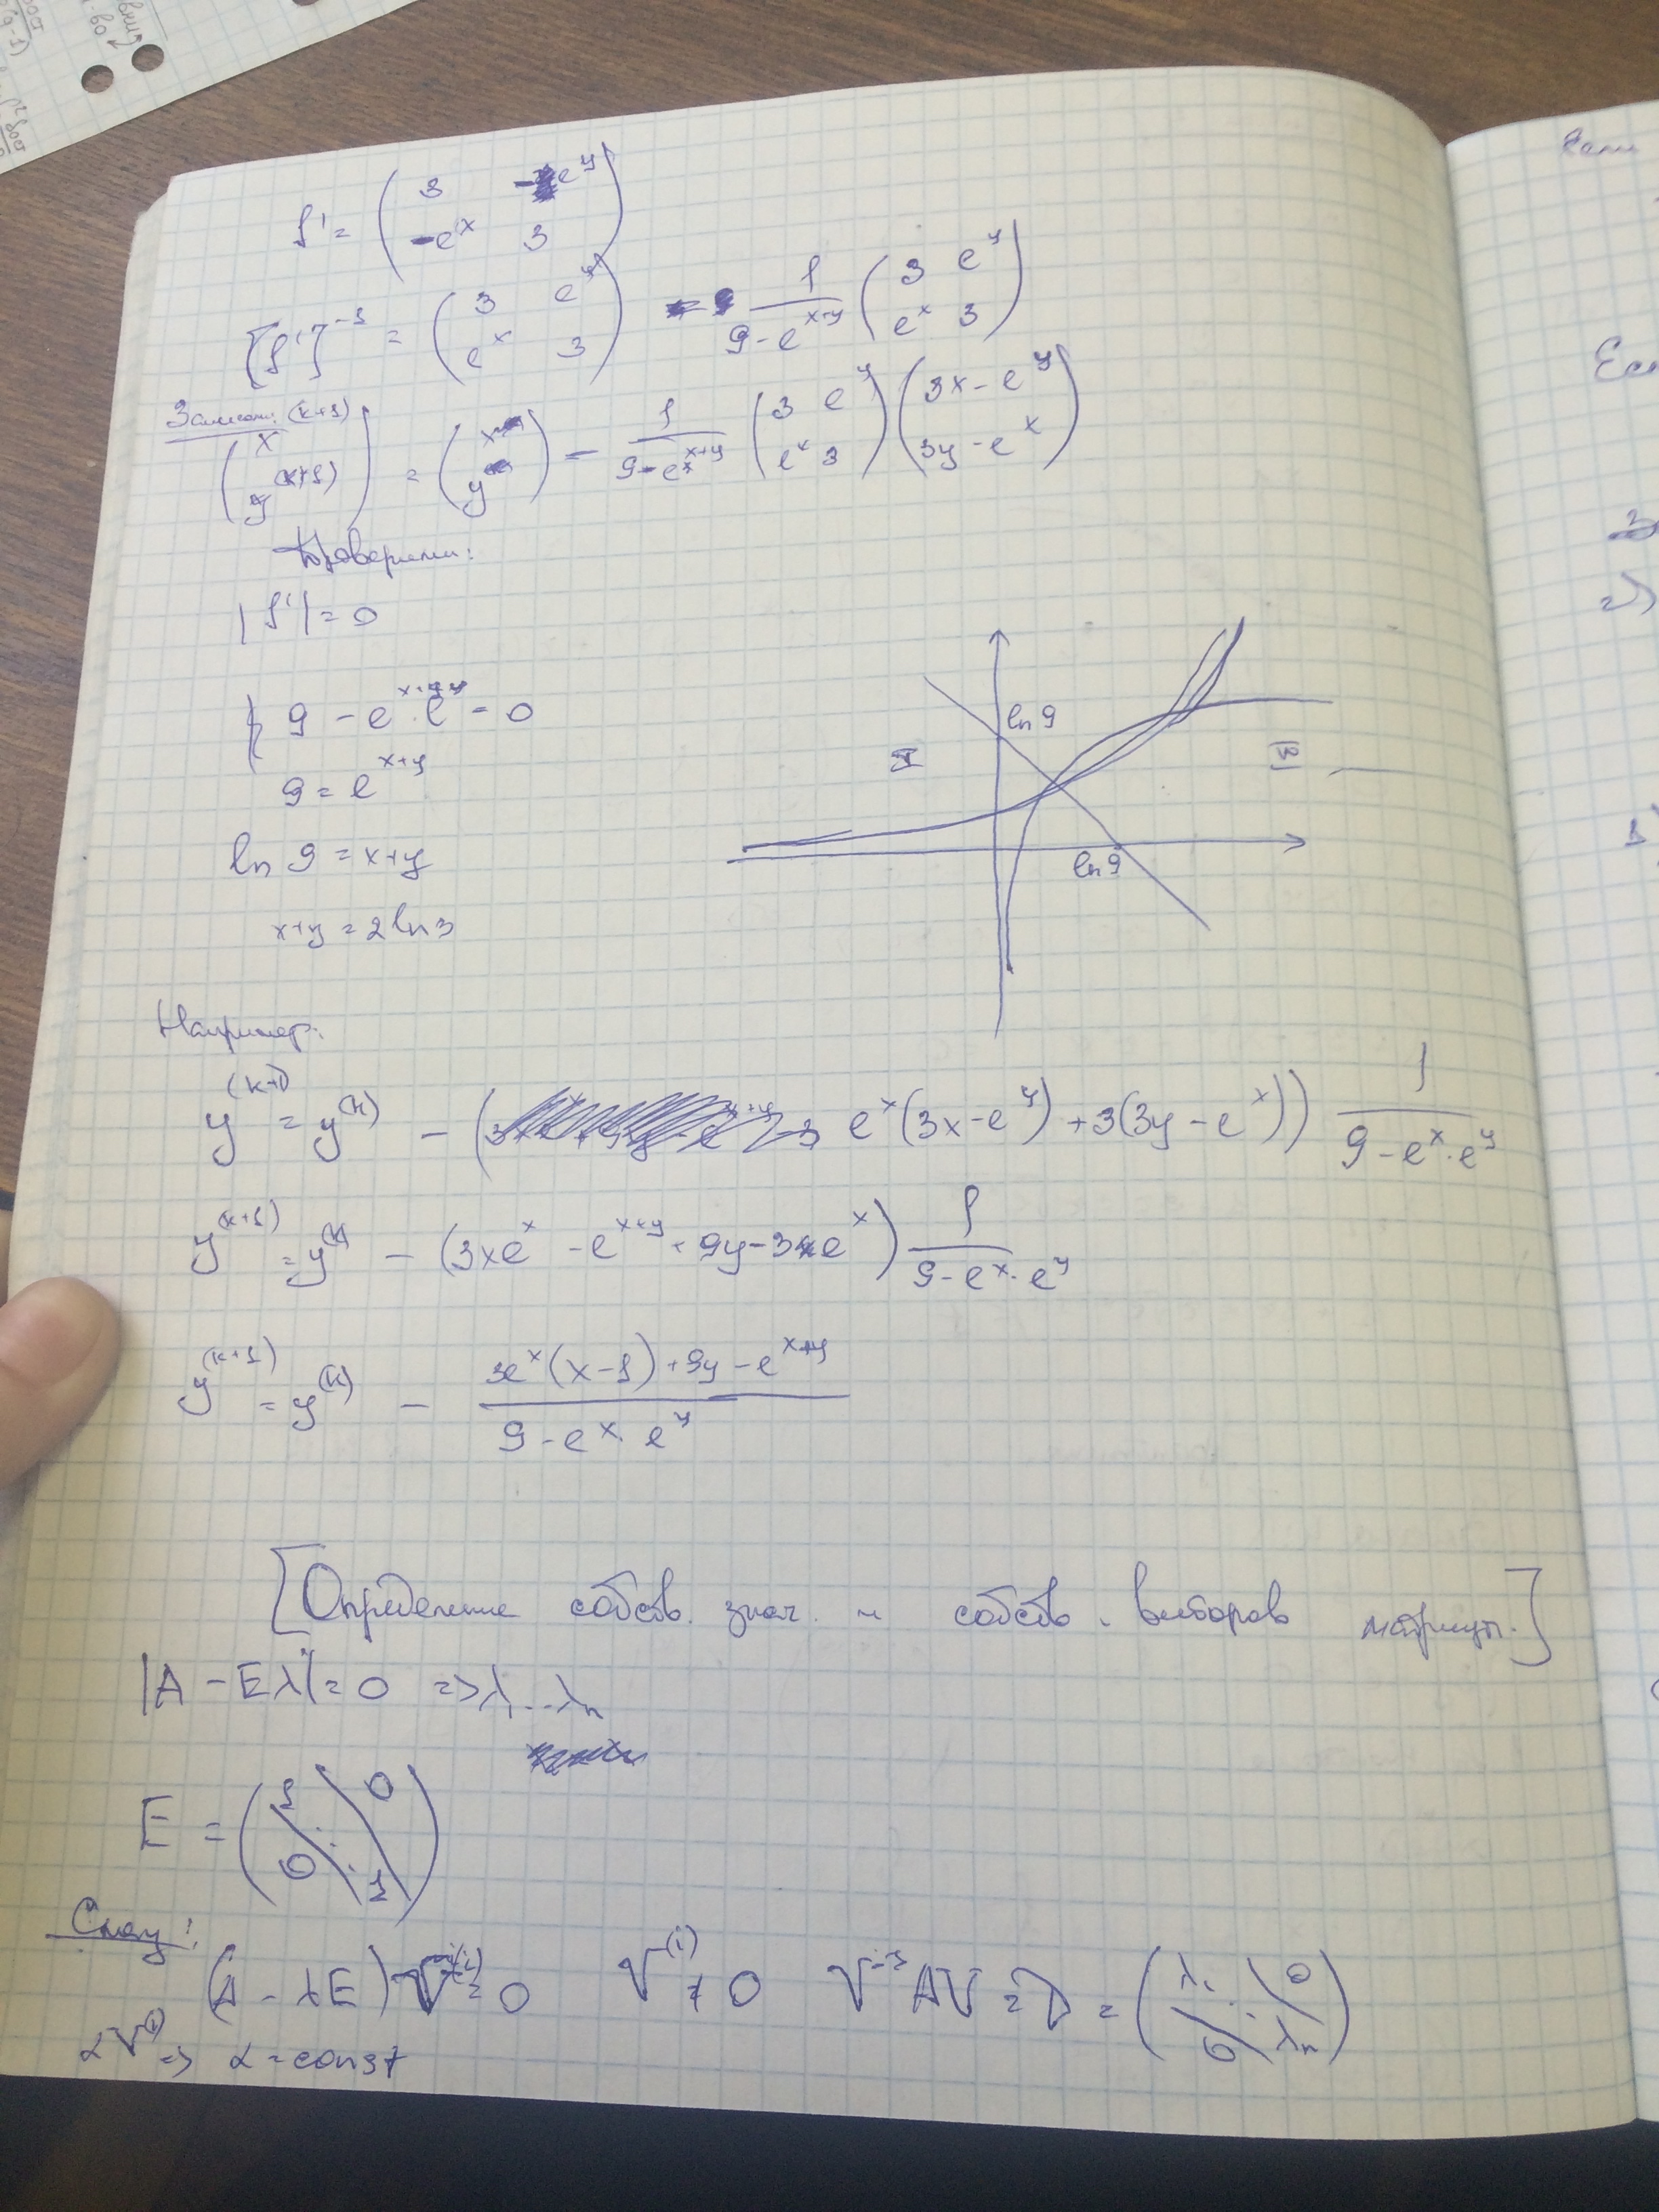 f' = ( 3 -e^y ; -e^x 3 )
[f']^-1 = ( 3 e^y ; e^x 3 ) 1/(9-e^(x+y)) ( 3 e^y ; e^x 3 )
( x^(k+1) ; y^(k+1) ) = ( x ; y ) - 1/(9-e^(x+y)) ( 3 e^y ; e^x 3 ) ( 3x-e^y ; 3y-e^x )
Проверяем:
|f'| = 0
9 - e^x · e^y = 0
9 = e^(x+y)
ln 9 = x+y
x+y = 2 ln 3
ln 9
ln 9
Например:
y^(k+1) = y^(k) - ( e^x (3x-e^y) + 3(3y-e^x) ) 1/(9-e^x·e^y)
y^(k+1) = y^(k) - (3xe^x - e^(x+y) + 9y - 3e^x) 1/(9-e^x·e^y)
y^(k+1) = y^(k) - (3e^x(x-1) + 9y - e^(x+y))/(9-e^x·e^y)
[Определение собств. знач. и собств. векторов матрицы.]
|A - Eλ| = 0 => λ1...λn
E = ( 1 0 ; 0 1 )
(A - λE) V^(i) = 0 V^(i) ≠ 0 V^-1 AV = D = ( λ1 0 ; 0 λn )
αV^(i) => α = const